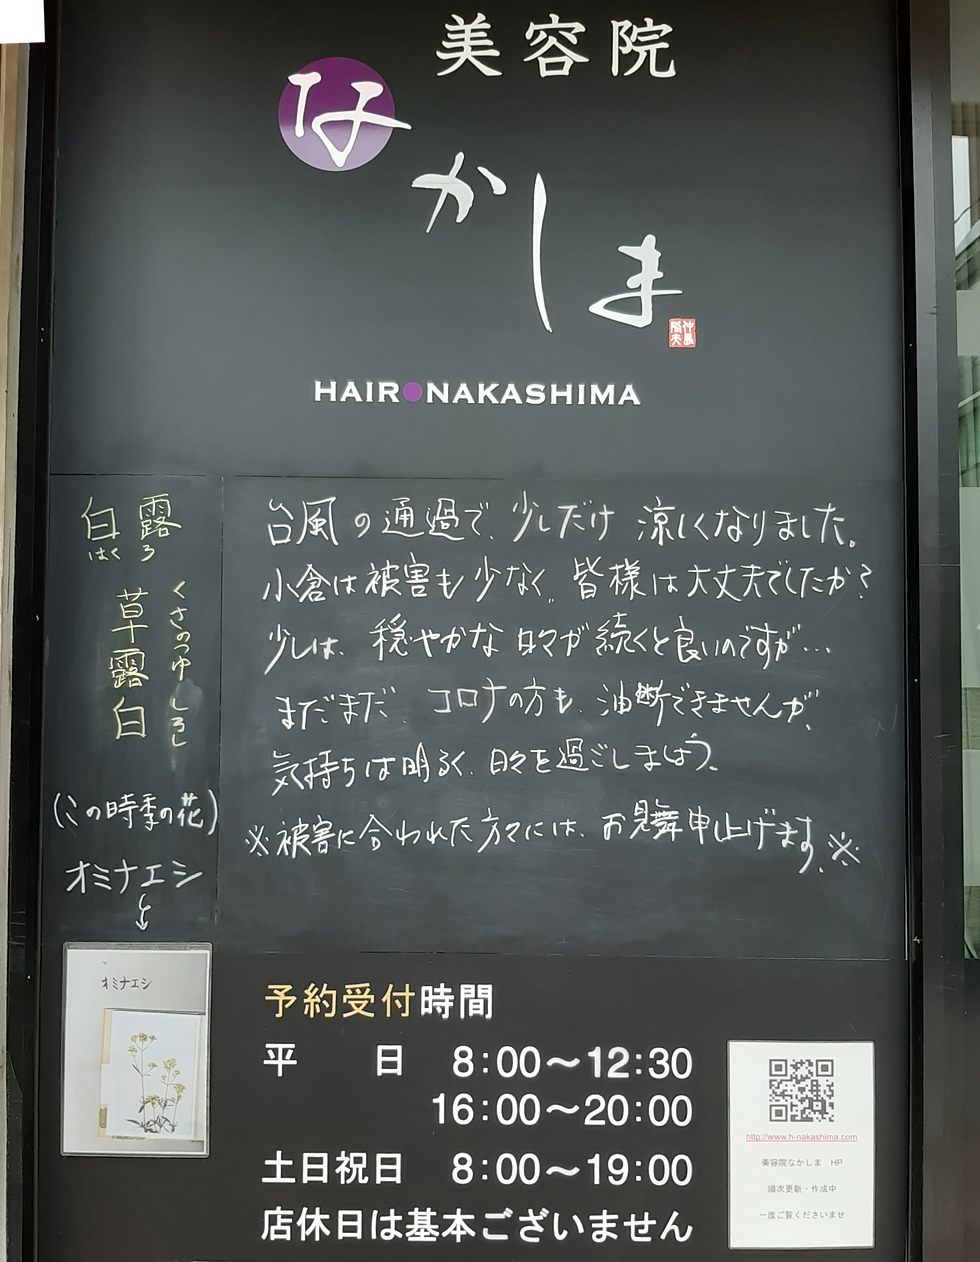 美容院
なかしま
仲島
HAIR●NAKASHIMA
白露
はくろ
草露白
くさのつゆしろし
(この時季の花)
オミナエシ
オミナエシ
台風の通過で、少しだけ 涼しくなりました。
小倉は被害も少なく、皆様は大丈夫でしたか?
少しは、穏やかな日々が続くと良いのですが…
まだまだ、コロナの方も、油断できませんが、
気持ちは明るく、日々を過ごしましょう。
※被害に合われた方々には、お見舞申上げます。※
予約受付時間
平日 8:00〜12:30
16:00〜20:00
土日祝日 8:00〜19:00
店休日は基本ございません
http://www.h-nakashima.com
美容院なかしま HP
順次更新・作成中
一度ご覧くださいませ